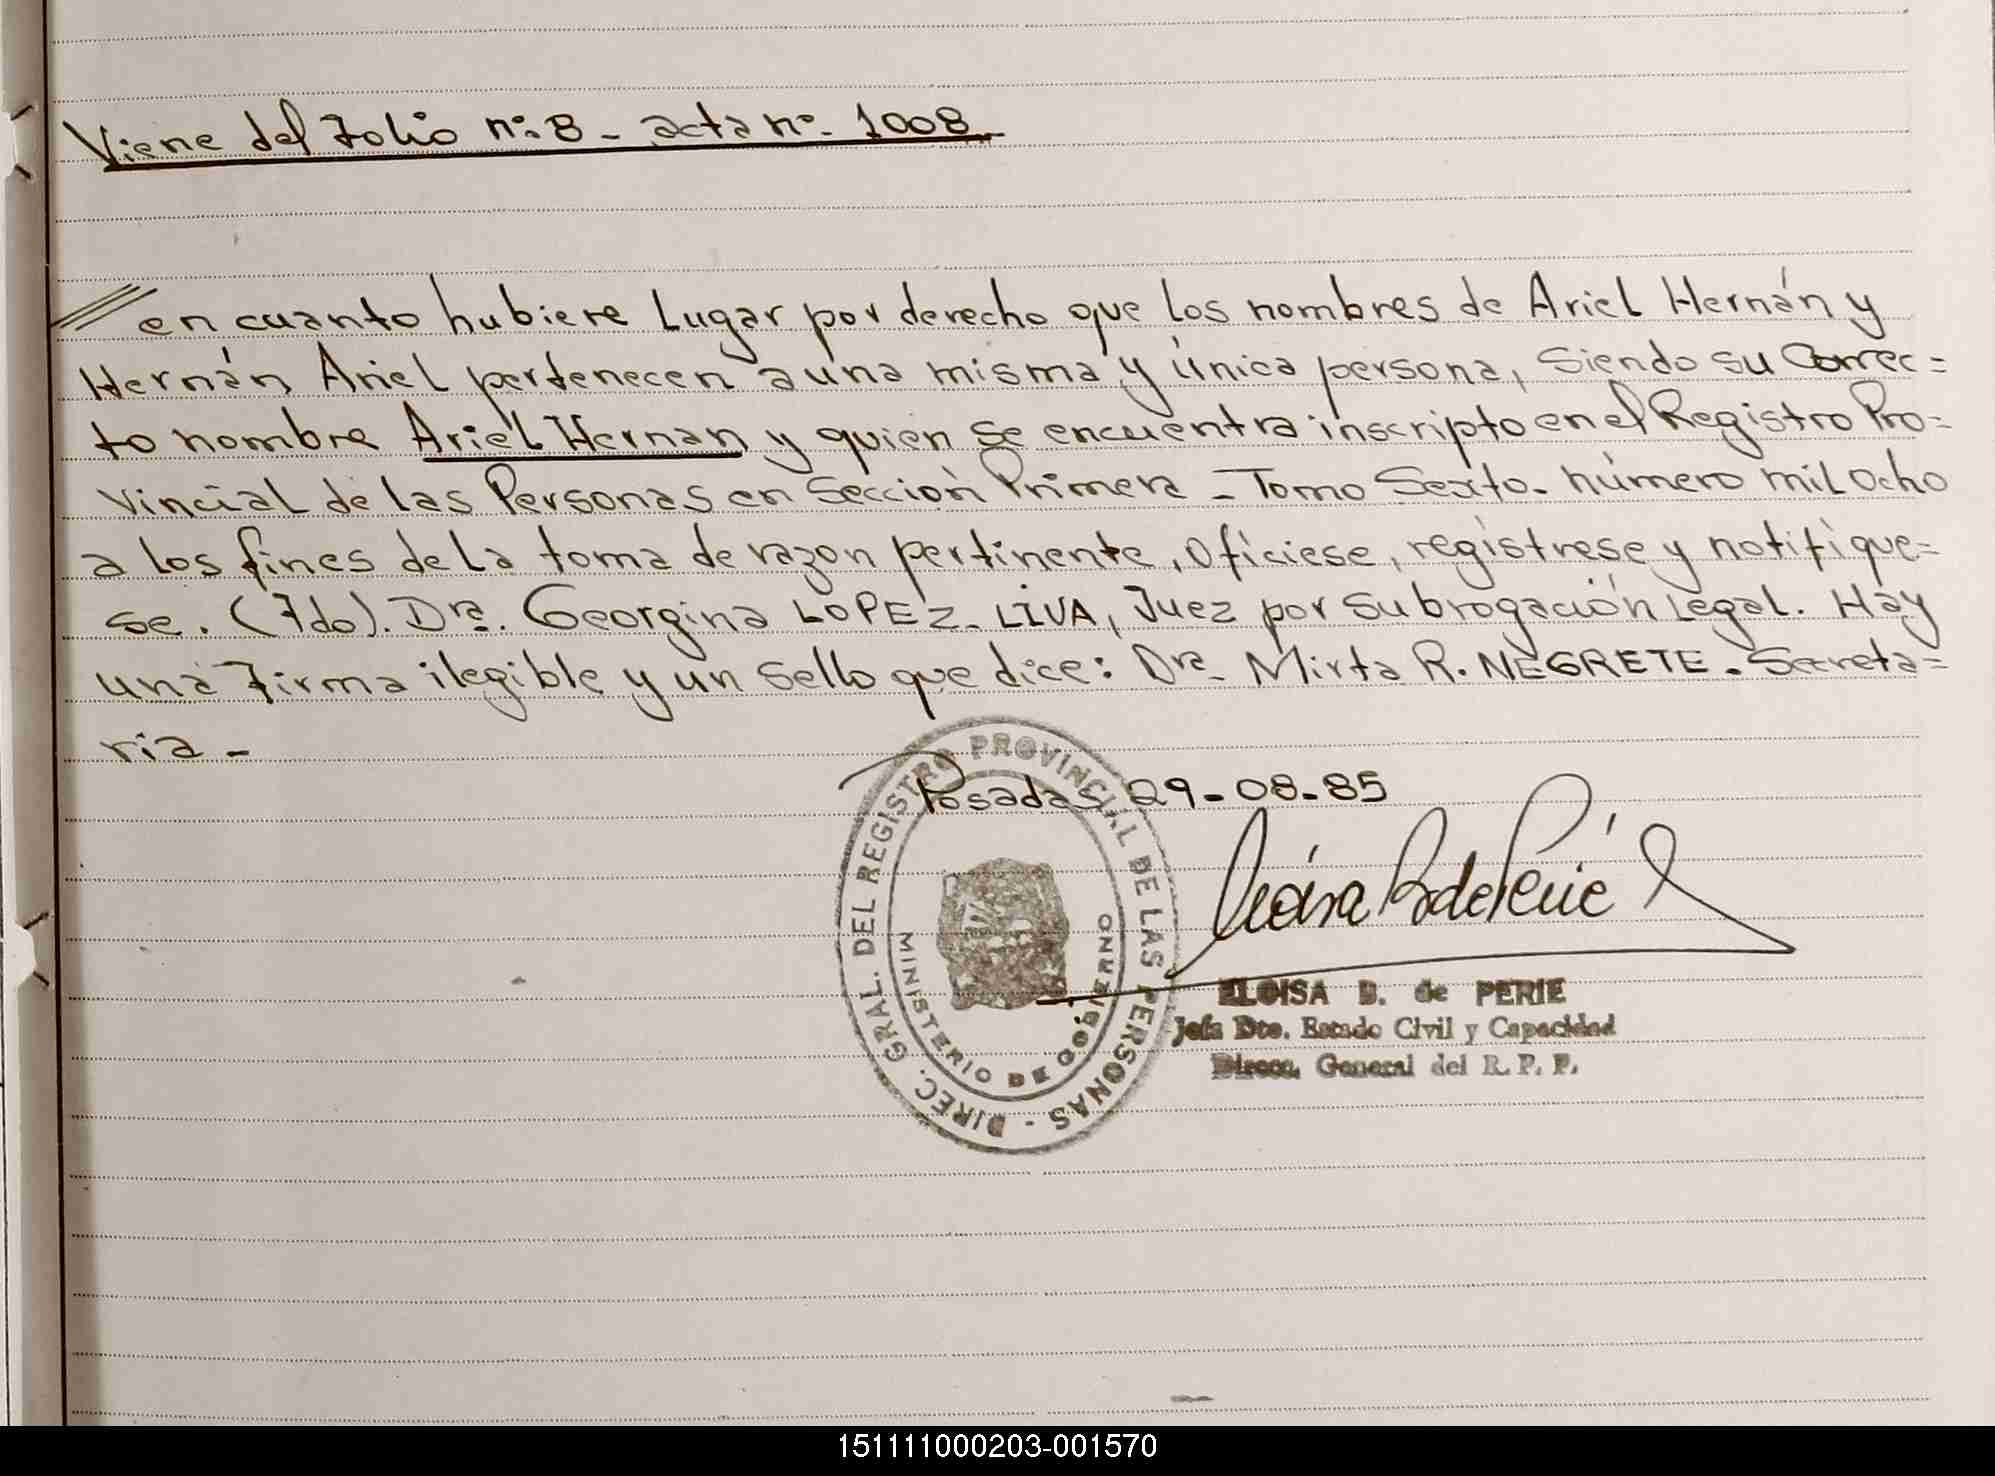 Viene del folio nº. 8 - acta nº. 1008.
en cuanto hubiere Lugar por derecho que los nombres de Ariel Hernán y
Hernán Ariel pertenecen a una misma y única persona, siendo su correc=
to nombre Ariel Hernan y quien se encuentra inscripto en el Registro Pro=
vincial de las Personas en Sección Primera - Tomo Sexto - número mil ocho
a los fines de la toma de razon pertinente, ofíciese, regístrese y notifique=
se. (Fdo). Dra. Georgina LOPEZ - LIVA, Juez por subrogación Legal. Hay
una firma ilegible y un sello que dice: Dra. Mirta R. NEGRETE. Secreta=
ria -
Posadas, 29-08-85
DIREC. GRAL. DEL REGISTRO PROVINCIAL DE LAS PERSONAS -
MINISTERIO DE GOBIERNO
ELOISA B. de PERIE
Jefa Dto. Estado Civil y Capacidad
Direcc. General del R. P. P.
151111000203-001570